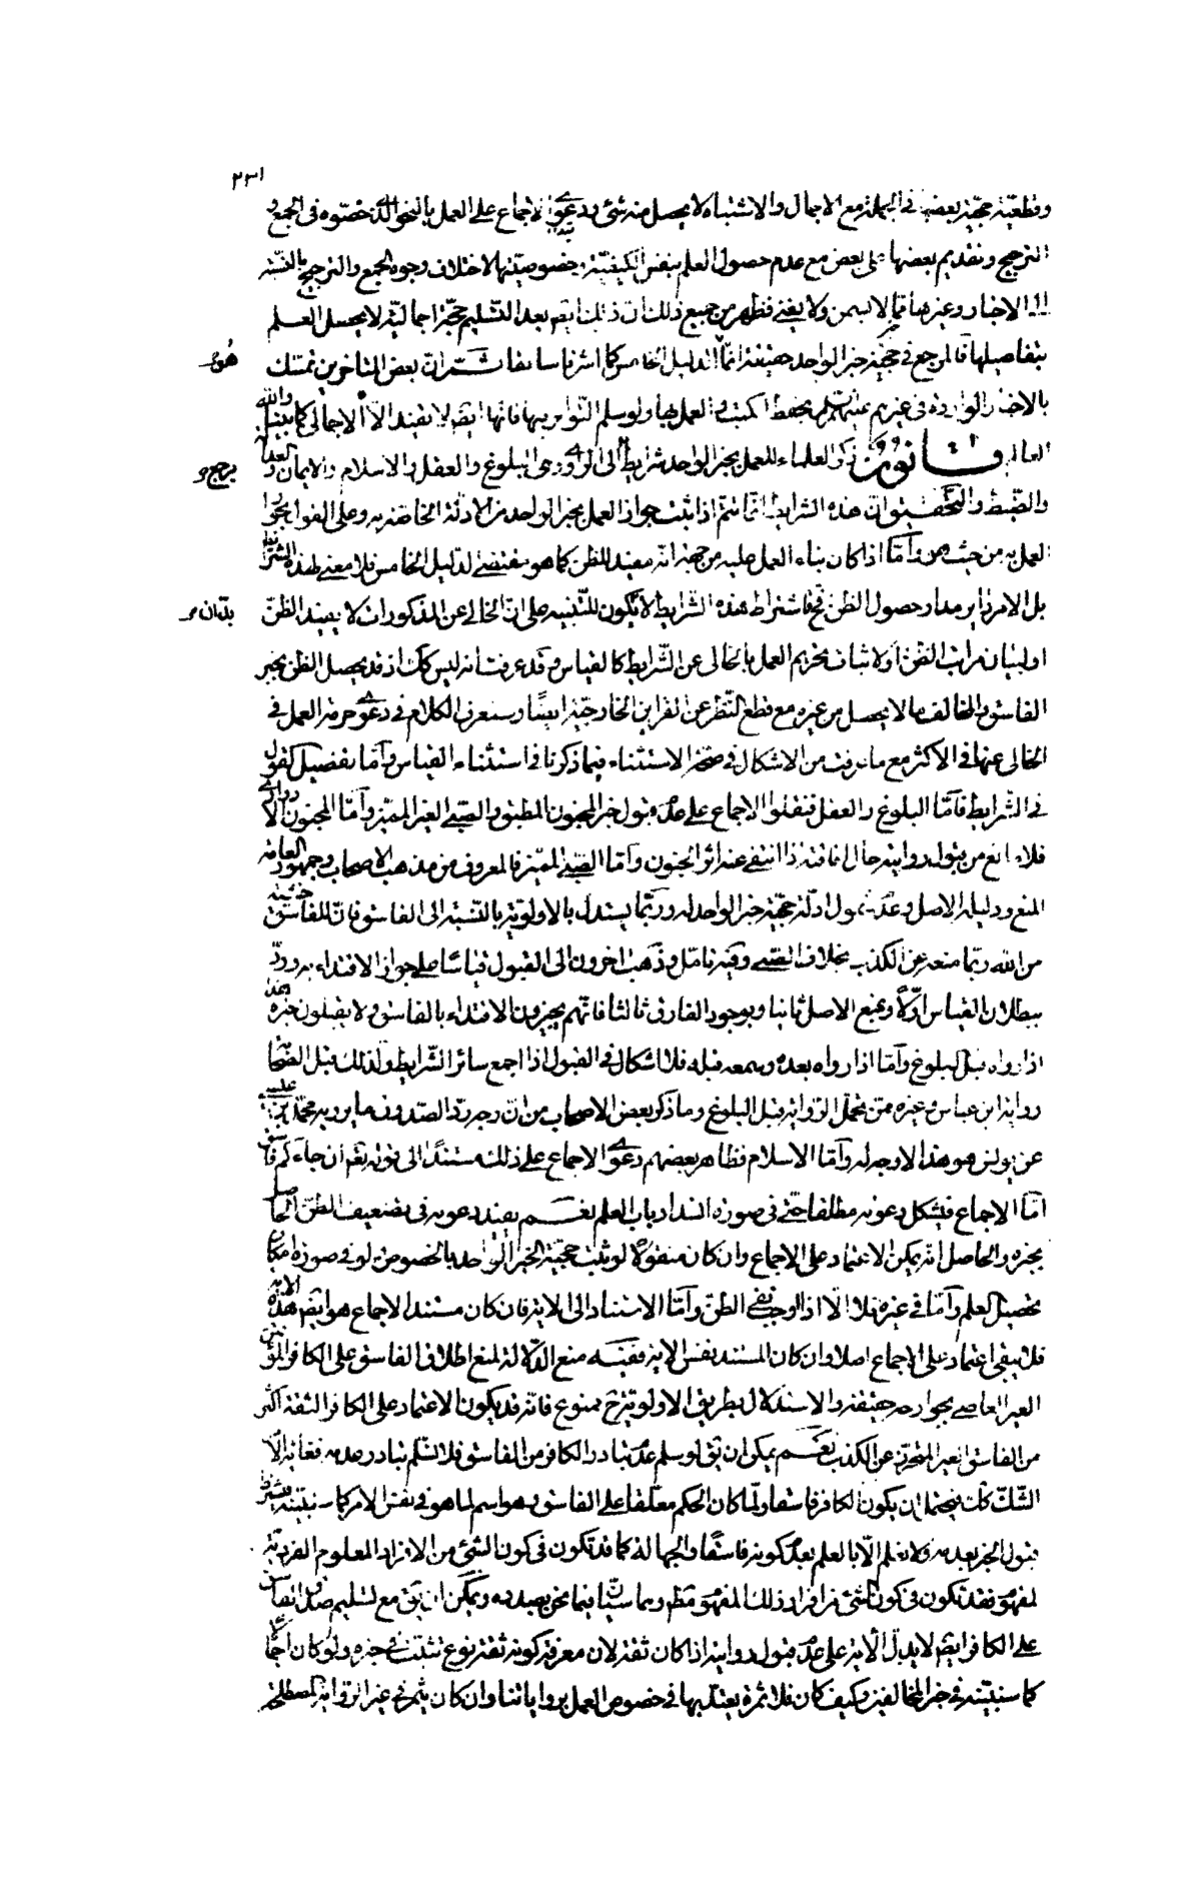 ٢٣١
وقطعيّة حجيّة بعضها في الجملة مع الاجمال والاشتباه لا يحصل منه شئ ودعوى الاجماع على العمل بالنحو الذي خصّوه في الجمع و
الترجيح وتقديم بعضها على بعض مع عدم حصول العلم بنفس الكيفيّة وخصوصيّتها لاختلاف وجوه الجمع والترجيح بالنسبة
الى الاخبار وغيرها ممّا لا يسمن ولا يغني فظهر من جميع ذلك ان ذلك ايضا بعد التسليم حجّة اجماليّة لا يحصل العلم
بتفاصيلها فالمرجع في حجيّة خبر الواحد حقيقة انّما هو الدليل الخامس كما اشرنا سابقا ثمّ انّ بعض المتاخرين تمسّك
هو
بالاخبار الواردة في عنهم عليهم السلم بحفظ الكتب والعمل بها ولو سلم التواتر بها فانها ايضا لا يفيد الّا الاجمالي كما بينّا والله
العالم قانون ذكر العلماء للعمل بخبر الواحد شرايط في الراوي وهي البلوغ والعقل والاسلام والايمان والعدالة
ترجع
والضبط والتحقيق ان هذه الشرايط انّما يتم اذا ثبت جواز العمل بخبر الواحد من الادلة الخاصّة به وعلى القول بجواز
العمل به من حيث هو وامّا اذا كان بناء العمل عليه من جهة انّه مفيد للظن كما هو مقتضى الدليل الخامس فلا معنى لهذه الشرايط
بل الامر داير مدار حصول الظن فح فاشتراط هذه الشرايط لا يكون للتّنبيه على انّ الخالي عن المذكورات لا يفيد الظنّ
او لبيان مراتب الظن او لاثبات تحريم العمل بالخالى عن الشّرايط كالقياس وقد عرفت انه ليس كك اذ قد يحصل الظن بخبر
الفاسق والمخالف ما لا يحصل من غيره مع قطع النّظر عن القراين الخارجيّة ايضًا وستعرف الكلام في دعوى حرمة العمل في
الخالى عنها في الاكثر مع ما عرفت من الاشكال في صحّة الاستثناء فيما ذكرنا في استثناء القياس وامّا تفصيل القول
في الشّرايط فامّا البلوغ والعقل فنقلوا الاجماع على عدم قبول خبر المجنون المطبق والصّبي الغير المميّز وامّا المجنون الادواري
فلا مانع من قبول روايته حال افاقته اذا انتفى عنه اثر الجنون وامّا الصّبي المميّز فالمعروف من مذهب الاصحاب وجمهور العامّة
المنع ودليله الاصل وعدم شمول ادلّة حجّية خبر الواحد له وربّما يستدل بالاولويّة بالنّسبة الى الفاسق فانّ للفاسق خشية
من الله ربّما منعه عن الكذب بخلاف الصّبي وفيه تامّل وذهب اخرون الى القبول قياسًا على جواز الاقتداء به وردّ
ببطلان القياس اوّلًا وبمنع الاصل ثانيا وبوجود الفارق ثالثا فانّهم يجيزون الاقتداء بالفاسق ولا يقبلون خبره
اذا رواه قبل البلوغ وامّا اذا رواه بعده وسمعه قبله فلا اشكال في القبول اذا اجمع سائر الشّرايط ولذلك قبل الصّحابة
رواية ابن عباس وغيره ممّن تحمل الرّواية قبل البلوغ وما ذكر بعض الاصحاب من انّ وجه ردّ الصّدوق ما يرويه محمّد بن عيسى
عن يونس هو هذا لا وجه له وامّا الاسلام فظاهر بعضهم دعوى الاجماع على ذلك مستندًا الى قوله تعالى ان جاءكم فاسق
امّا الاجماع فيشكل دعوته مطلقا حتى في صورة انسداد باب العلم نعم يفيد دعوته في تضعيف الظن الحاصل
بخبره والحاصل انّه يمكن الاعتماد على الاجماع وان كان منقولًا لو ثبت حجيّة الخبر الواحد بالخصوص ولو في صورة امكان
تحصيل العلم وامّا في غيره فلا الّا اذا اوجب نفي الظنّ وامّا الاستناد الى الاية فان كان مستند الاجماع هو ايضا هذه الاية
فلا يبقى اعتماد على الاجماع اصلا وان كان المستند نفس الاية ففيه منع الدّلالة لمنع اطلاق الفاسق على الكافر المؤتمن
الغير العاصي بجوارحه حقيقة والاستدلال بطريق الاولويّة ممنوع فانّه قد يكون الاعتماد على الكافر الثقة اكثر
من الفاسق الغير المتحرّز عن الكذب نعم يمكن ان يق لو سلم عدم تبادر الكافر من الفاسق فلا نسلّم تبادر عدمه فغايته الّا
الشّك كان يحتمل ان يكون الكافر فاسقا ولمّا كان الحكم معلّقا على الفاسق وهو اسم لما هو في نفس الامر كما سنبيّنه يشترط
قبول الخبر بعدمه ولا نعلم الّا بالعلم بعدم كونه فاسقًا والجهالة كما قد تكون في كون الشئ من الافراد المعلوم الفردية
لمفهوم فقد تكون في كون الشئ من افراد ذلك المفهوم مط وهما سيّان فيما نحن بصدده ويمكن ان يق مع تسليم صدق الفاسق
على الكافر ايضا لا يدلّ الاية على عدم قبول روايته اذا كان ثقة لان معرفة كونه ثقة نوع تثبّت في خبره ولو كان اجماليا
كما سنبيّنه في خبر المخالفين وكيف كان فلا ثمرة يعتدّ بها في خصوص العمل برواياتنا وان كان يثمر في غير الرّواية المصطلحة